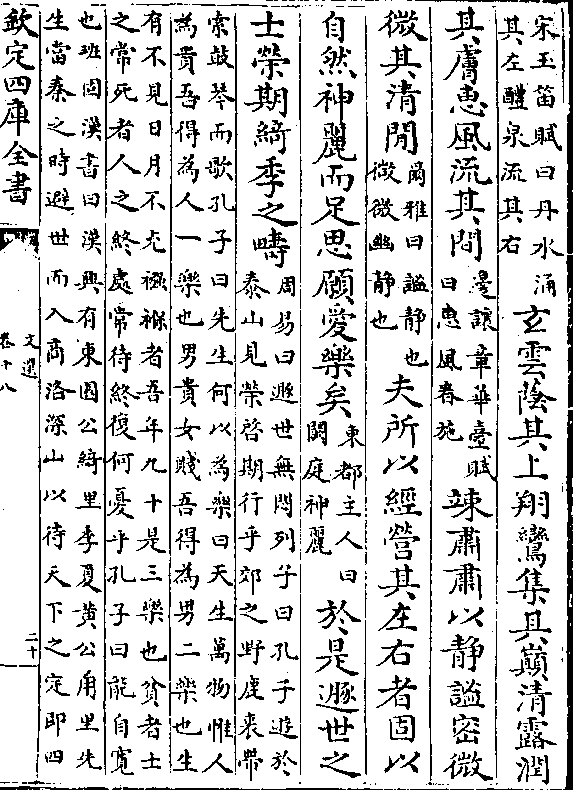 宋玉笛賦曰丹水涌
其左醴泉流其右
玄雲蔭其上翔鸞集其巔清露潤
其膚惠風流其間
邊讓章華臺賦
曰惠風春施
竦肅肅以静謐密微
微其清閒
爾雅曰謐静也
微微幽静也
夫所以經營其左右者固以
自然神麗而足思願愛樂矣
東都主人曰
闕庭神麗
於是遯世之
士榮期綺季之疇
周易曰遯世無悶列子曰孔子遊於
泰山見榮啓期行乎郊之野鹿裘帶
索鼓琴而歌孔子曰先生何以為樂曰天生萬物惟人
為貴吾得為人一樂也男貴女賤吾得為男二樂也生
有不見日月不免襁褓者吾年九十是三樂也貧者士
之常死者人之終處常待終復何憂乎孔子曰能自寛
也班固漢書曰漢興有東園公綺里季夏黄公角里先
生當秦之時避世而入商洛深山以待天下之定即四
欽定四庫全書
文選
卷十八
二十